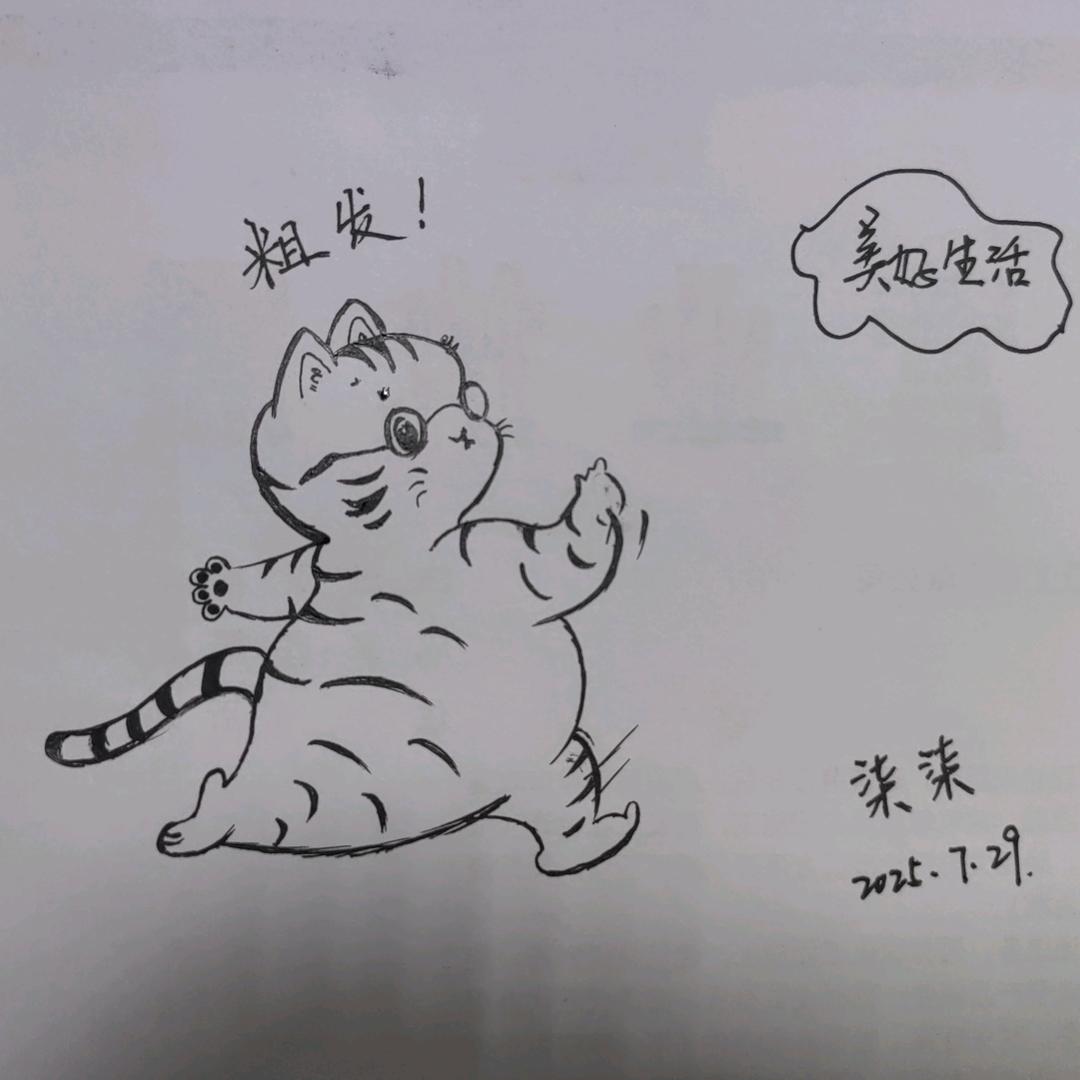 粗发！
美好生活
柒柒
2025.7.29.